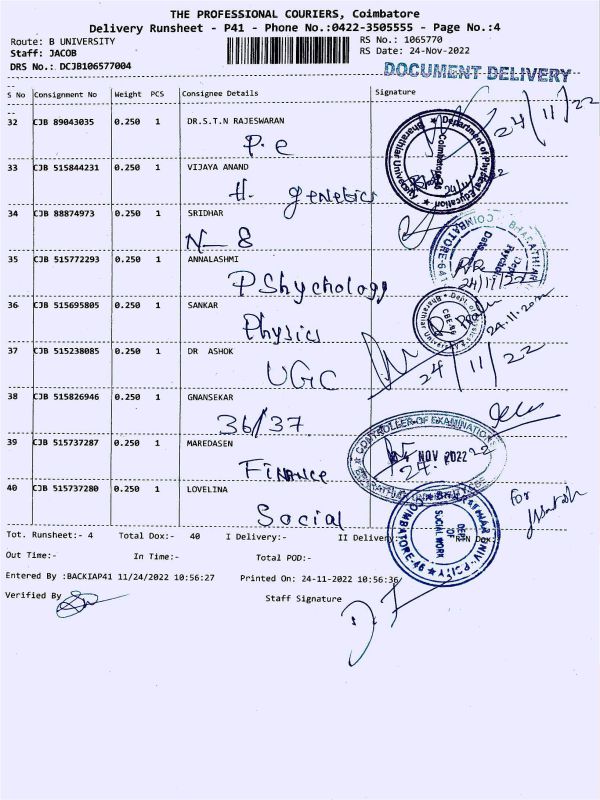 THE PROFESSIONAL COURIERS, Coimbatore
Delivery Runsheet - P41 - Phone No.:0422-3505555 - Page No.:4
Route: B UNIVERSITY
RS No.: 1065770
Staff: JACOB
RS Date: 24-Nov-2022
DRS No.: DCJB106577004
DOCUMENT DELIVERY
S No Consignment No Weight PCS Consignee Details Signature
32 CJB 89043035 0.250 1 DR.S.T.N RAJESWARAN
P.e
24/11/22
33 CJB 515844231 0.250 1 VIJAYA ANAND
H. genetics
Department of Physical Education
Bharathiar University
Coimbatore
34 CJB 88874973 0.250 1 SRIDHAR
N-8
35 CJB 515772293 0.250 1 ANNALASHMI
PShychology
24/11/22
36 CJB 515695805 0.250 1 SANKAR
Physics
24.11.2022
37 CJB 515238085 0.250 1 DR ASHOK
UGC
24/11/22
38 CJB 515826946 0.250 1 GNANSEKAR
36/37.
39 CJB 515737287 0.250 1 MAREDASEN
Finance
CONTROLLER OF EXAMINATION
NOV 2022
40 CJB 515737280 0.250 1 LOVELINA
Social
For
DEPT OF SOCIAL WORK
COIMBATORE-46
Tot. Runsheet:- 4 Total Dox:- 40 I Delivery:- II Delivery: RTN Dox:
Out Time:- In Time:- Total POD:-
Entered By :BACKIAP41 11/24/2022 10:56:27 Printed On: 24-11-2022 10:56:36
Verified By
Staff Signature